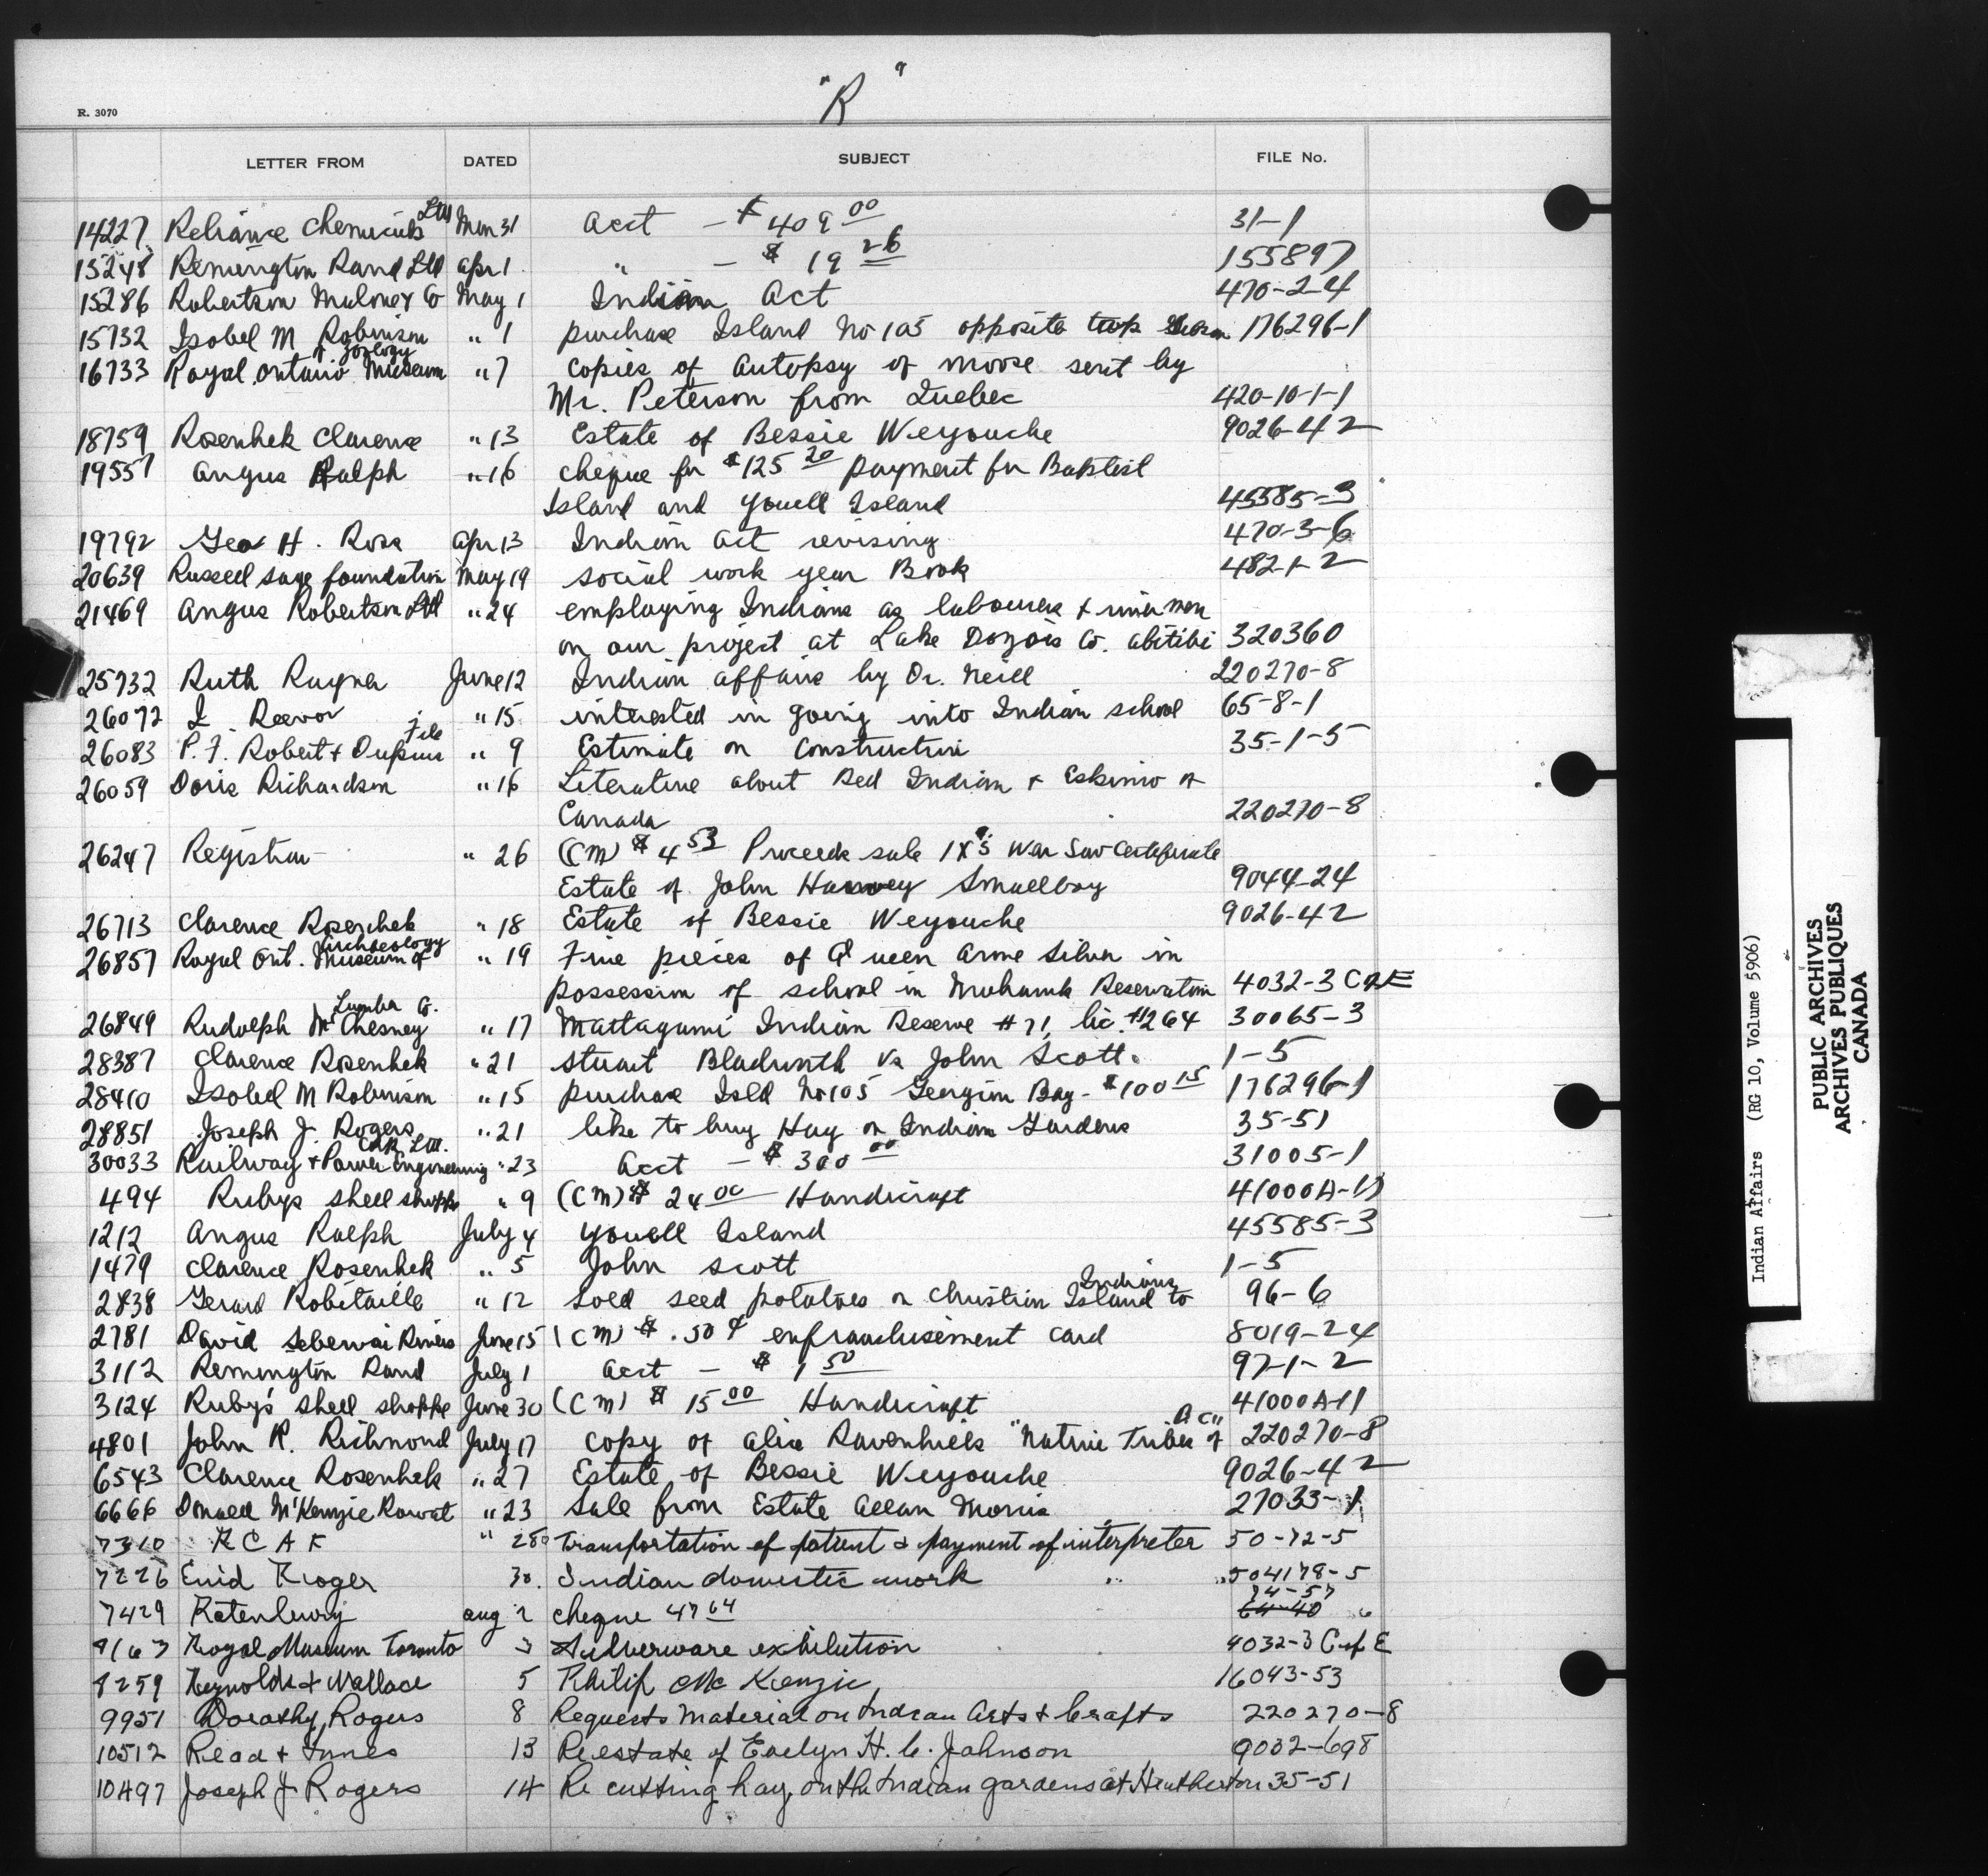 "R"
R. 3070
LETTER FROM DATED SUBJECT FILE No.
14227 Reliance Chemicals Ltd 31 acct - $409 00 31-1
15248 Remington Rand Ltd Apr 1 " - $ 19 26 155897
15286 Robertson Co May 1 Indian Act 470-2-4
15732 Isobel M Robinson " 1 purchase Island No 105 opposite 176296-1
16733 Royal Ontario Museum of Zoology " 7 copies of autopsy of moose sent by
Mr. Peterson from Quebec 420-10-1-1
18759 Rosenhek Clarence " 13 Estate of Bessie Weyouche 9026-42
19557 Angus Ralph " 16 cheque for $125 20 payment for Baptist
Island and Yowell Island 45585-3
19792 Geo H. Ross Apr 13 Indian act revising 470-3-6
20639 Russell sage foundation May 19 social work year Book 482-1-2
21469 Angus Robertson Ltd " 24 employing Indians as labourers + river men
on our project at Lake Dozois Co. abitibi 320360
25732 Ruth Rayner June 12 Indian affairs by Dr. Neill 220270-8
26072 I Reevor " 15 interested in going into Indian school 65-8-1
26083 P. F. Robert + Dupuis " 9 Estimate on Construction 35-1-5
26059 Doris Richardson " 16 Literature about Red Indian + Eskimo of
Canada 220270-8
26247 Registrar " 26 (CM) $ 4 53 Proceeds sale 1 X 5 War Sav Certificate
Estate of John Harvey Smallboy 9044-24
26713 Clarence Rosenhek " 18 Estate of Bessie Weyouche 9026-42
26857 Royal Ont. Museum of Archaeology " 19 Five pieces of Queen Anne Silver in
possession of school in Mohawk Reservation 4032-3 C of E
26849 Rudolph McChesney Lumber Co. " 17 Mattagami Indian Reserve #71, lic. #264 30065-3
28387 Clarence Rosenhek " 21 Stuart vs John Scott. 1-5
28410 Isobel M Robinson " 15 purchase Isld No 105 Georgian Bay - $100 15 176296-1
28851 Joseph J. Rogers " 21 like to buy Hay on Indian Gardens 35-51
30033 Railway + Power Engineering Ltd. " 23 Acct - $ 300 00 31005-1
494 Rubys shell shoppe " 9 (CM) $ 24 00 Handicraft 41000A-11
1212 Angus Ralph July 4 Yowell Island 45585-3
1479 Clarence Rosenhek " 5 John Scott 1-5
2838 Gerard Robitaille " 12 Sold seed potatoes on Christian Island to Indians 96-6
2781 David Rivers June 15 (CM) $ .50 ¢ enfranchisement card 8019-24
3112 Remington Rand July 1 acct - $ 1 50 97-1-2
3124 Ruby's shell shoppe June 30 (CM) $ 15 00 Handicraft 41000A-11
4801 John R. Richmond July 17 copy of Alice Ravenhills "Native Tribes of B C" 220270-8
6543 Clarence Rosenhek " 27 Estate of Bessie Weyouche 9026-42
6666 Donald McKenzie Rowat " 23 Sale from Estate Allan Morris 27033-1
7310 R C A F " 28 Transportation of patient & payment of interpreter 50-72-5
7226 Enid Kroger 30. Indian domestic work 504178-5
7429 Ratenbury aug 2 cheque 47 64 64-40 74-57
9163 Royal Museum Toronto 3 Silverware exhibition 4032-3 C of E
9259 Reynolds + Wallace 5 Philip Mc Kenzie 16043-53
9951 Dorothy Rogers 8 Requests material on Indian Arts & Crafts 220270-8
10512 Read + Innes 13 Re estate of Evelyn H. C. Johnson 9032-698
10497 Joseph J Rogers 14 Re cutting hay on the Indian gardens at Heatherton 35-51
Indian Affairs (RG 10, Volume 5906)
PUBLIC ARCHIVES
ARCHIVES PUBLIQUES
CANADA